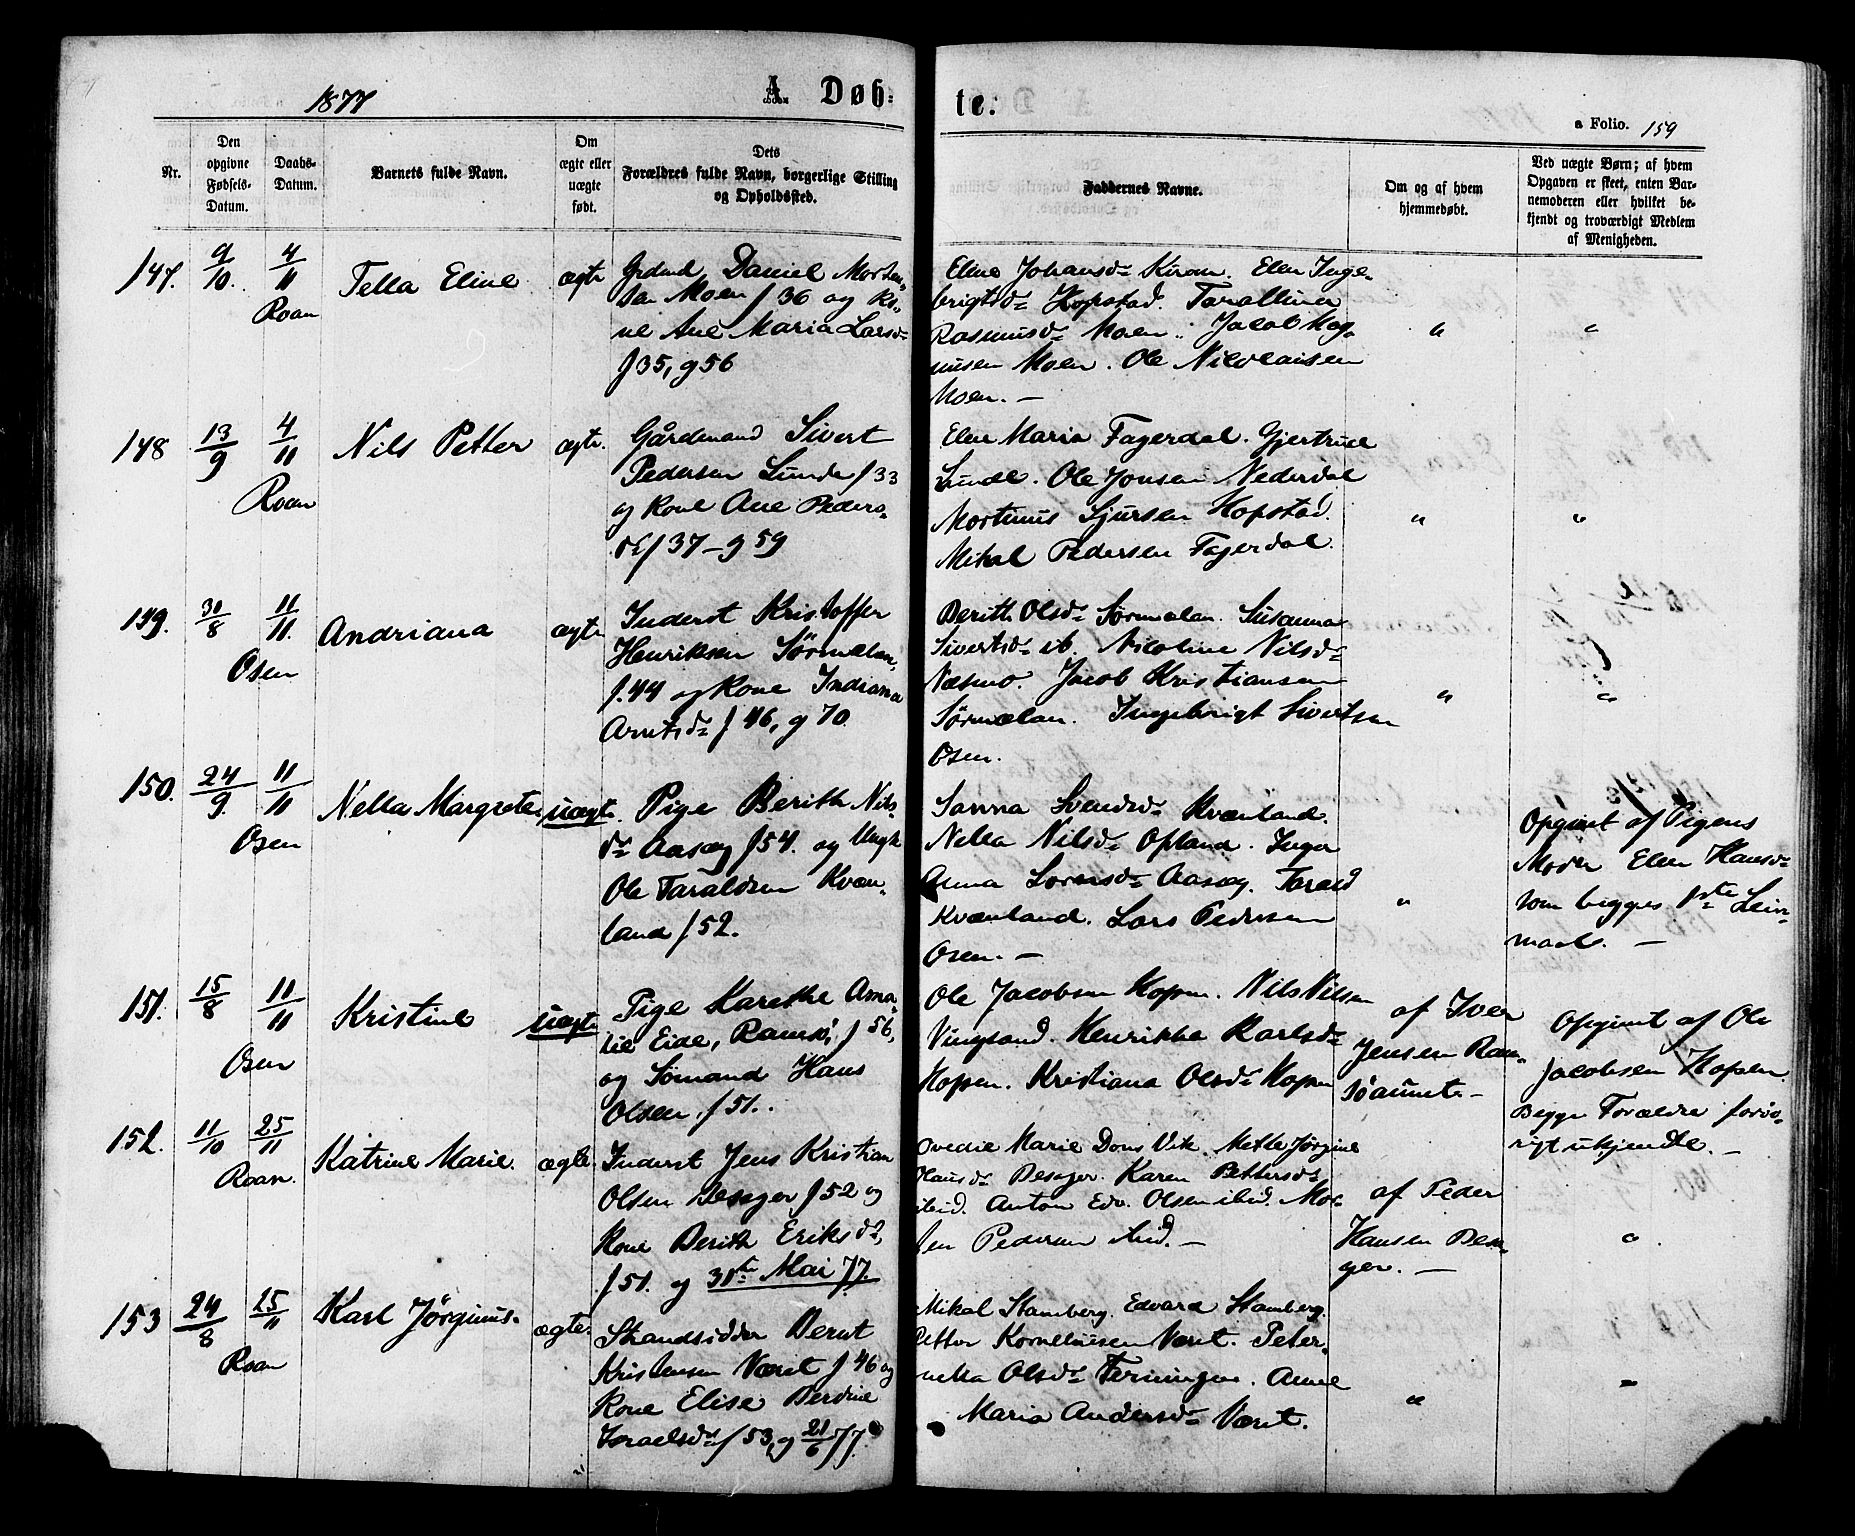 1877
A Døb=
te.
a Folio. 159
Nr.
Den opgivne Fødsels-Datum.
Daabs-Datum.
Barnets fulde Navn.
Om ægte eller uægte født.
Dets Forældres fulde Navn, borgerlige Stilling og Opholdssted.
Faddernes Navne.
Om og af hvem hjemmedøbt.
Ved uægte Børn; af hvem Opgaven er skeet, enten Barnemoderen eller hvilket bekjendt og troværdigt Medlem af Menigheden.
147. 9/10. 4/11 Roan
Tella Eline
ægte
Daniel Morten-
sen Moen f 36 og Ko-
ne Ane Maria Larsd=
f 35, g 56
Eline Johansd= Kiran. Elen Inge-
brigtsd= Hopstad. Tarallina
Rasmusd= Moen. Jacob Mag-
nusen Moen. Ole Nicolaisen
Moen. —
"
"
148 13/9 4/11 Roan
Nils Petter
ægte.
Gårdmand Sivert
Pedersen Sunde f 33
og Kone Ane Peders-
d= f 37 – g 59
Elen Maria Fagerdal. Gjertrud
Sunde. Ole Jonsen Nederdal
Mortinus Sjursen Hopstad.
Mikal Pedersen Fagerdal.
"
"
149. 30/8 11/11. Osen
Andriana
ægte
Inderst Kristoffer
Henriksen Sørmælan,
f. 44 og Kone Indiana
Arntsd= f 46, g 70.
Berith Olsd= Sørmelan. Susanna
Sivertsd= ib. Nicoline Nilsd=
Næsmo. Jacob Kristiansen
Sørmælan. Ingebrigt Sivertsen
Osen.
"
"
150. 24/9. 11/11 Osen
Nella Margrete,
uægte.
Pige Berith Nils-
d= Aasæg f 54. og Ungk
Ole Taraldsen Kvæn-
land f 52.
Sanna Svendsd= Kvænland.
Nella Nilsd= Opland. Inger
Anna Lornsd= Aasæg. Tarald
Kvænland. Lars Pedersen
Osen. —
"
Opgivet af Pigens
Moder Elen Hansd=
som begges 1ste Leier-
maal. —
151. 15/8 11/11 Osen
Kristine
uægte
Pige Karethe Ama-
lie Eide, Ramsø, f 56,
og Sømand Hans
Olsen, f 51.
Ole Jacobsen Hopen. Nils Nilsen
Vingsand. Henrikke Karlsd=
Hopen. Kristiana Olsd= Hopen
af Iver
Jensen Ram-
søaunet. –
Opgivet af Ole
Jacobsen Hopen.
Begge Forældre forø-
rigt ukjendte. –
152. 11/10 25/11 Roan.
Katrine Marie.
ægte.
Inderst Jens Kristian
Olsen Besager f 52 og
Kone Berith Eriksd=,
f 51. og 31te Mai 77.
Ovedie Marie Dons Vik. Mette Jørgine
Hansd= Besager. Karen Pettersd=
ibid. Anton Edv. Olsen ibid. Mor-
ten Pedersen ibid. —
af Peder
Hansen Besa-
ger. —
"
153 24/8 25/11 Roan
Karl Jørginus.
ægte
Strandsidder Bernt
Kristensen Været f 46 og
Kone Elise Berdine
Israelsd= f 53, g 21/6 77.
Mikal Stamberg. Edvard Stamberg.
Petter Korneliusen Været. Peter-
nella Olsd= Terningen. Anne
Maria Andersd= Været.
"
"